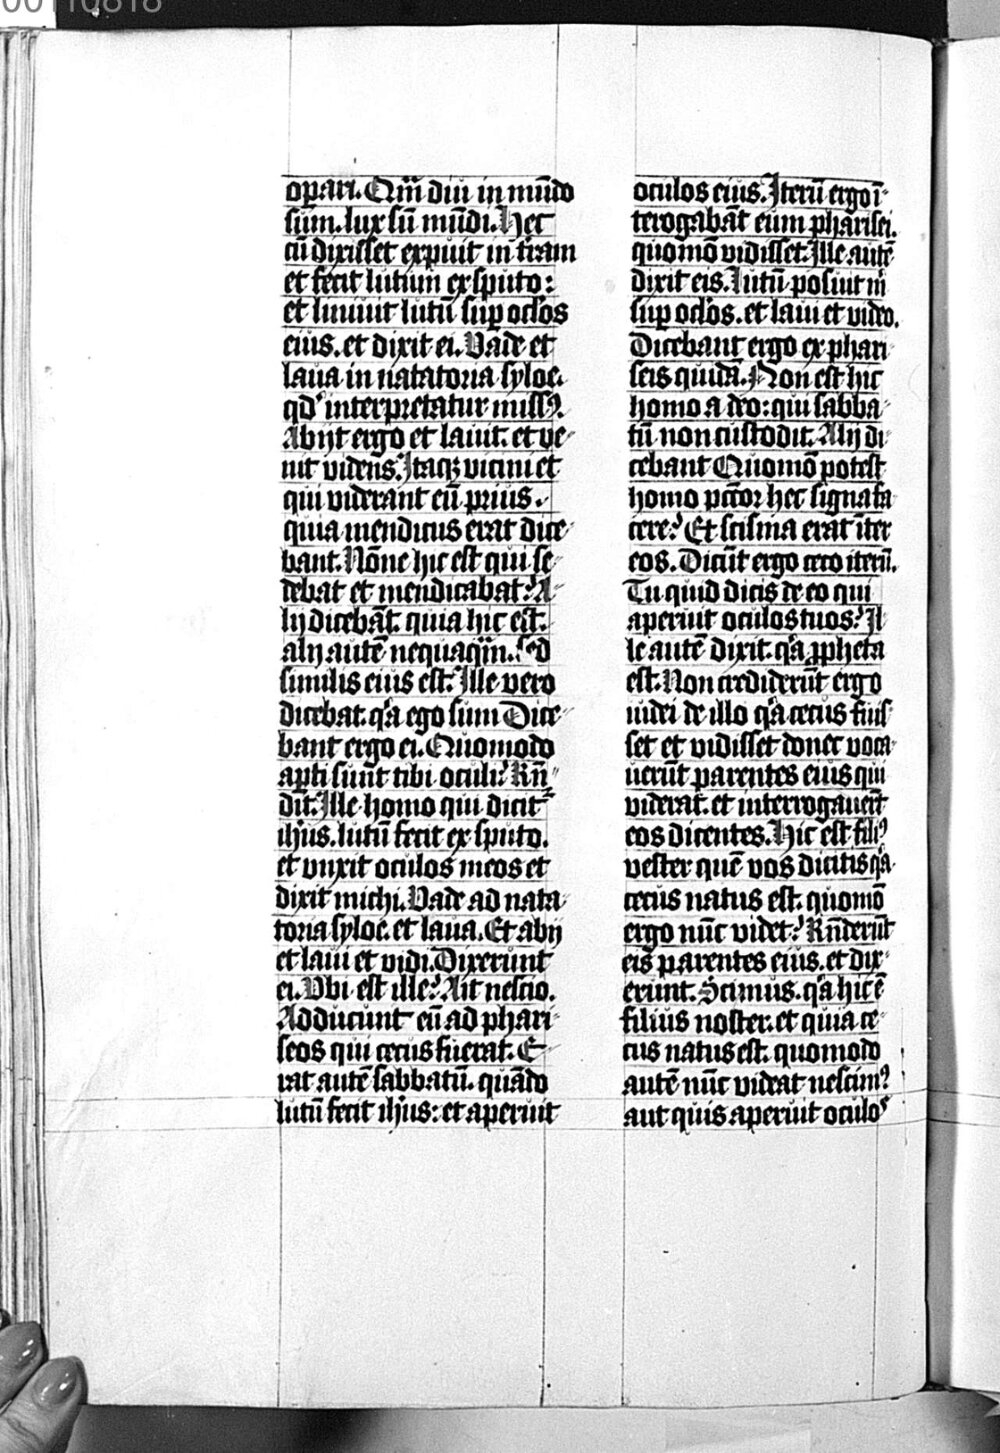 00110818
oꝑari. Qm̄ diu in mūdo
sum. lux sū mūdi. Hec
cū dixisset expuit in t̄ram
et fecit lutum ex sputo:
et liniuit lutū suꝑ oc̄los
eius. et dixit ei. Vade et
laua in natatoria syloe.
qd' interpretatur missꝰ.
Abijt ergo et lauit. et ve-
nit videns. Itaqꝫ vicini et
qui viderant eū prius.
quia mendicus erat dice-
bant. Nōne hic est qui se-
debat et mendicabat? A-
lij dicebāt. quia hic est.
alij autē nequaqm̄. sed
similis eius est. Ille vero
dicebat. qa ego sum Dice-
bant ergo ei. Quomodo
apti sunt tibi oculi? Rn̄-
dit. Ille homo qui dicit
ih̄us. lutū fecit ex sputo.
et vnxit oculos meos et
dixit michi. Vade ad nata-
toria syloe. et laua. Et abij
et laui et vidi. Dixerunt
ei. Vbi est ille? Ait nescio.
Adducunt eū ad phari-
seos qui cecus fuerat. E-
rat autē sabbatū. quādo
lutū fecit ih̄us: et aperuit
oculos eius. Iterū ergo ī-
terogabāt eum pharisei.
quomō vidisset. Ille autē
dixit eis. Lutū posuit m̄
suꝑ oc̄los. et laui et video.
Dicebant ergo ex phari-
seis quidā. Non est hic
homo a deo: qui sabba-
tū non custodit. Alij di-
cebant Quomō potest
homo pctōr hec signa fa-
cere? Et scisma erat īter
eos. Dicūt ergo ceco iterū.
Tu quid dicis de eo qui
aperuit oculos tuos? Il-
le autē dixit. qa ꝓpheta
est. Non crediderūt ergo
iudei de illo qa cecus fuis-
set et vidisset donec voca-
uerūt parentes eius qui
viderat. et interrogauerūt
eos dicentes. Hic est filiꝰ
vester quē vos dicitis qa
cecus natus est. quomō
ergo nūc videt? Rn̄derūt
eis parentes eius. et dix-
erunt. Scimus. qa hic ē
filius noster. et quia ce-
cus natus est. quomodo
autē nūc videat nescimꝰ
aut quis aperuit oculos